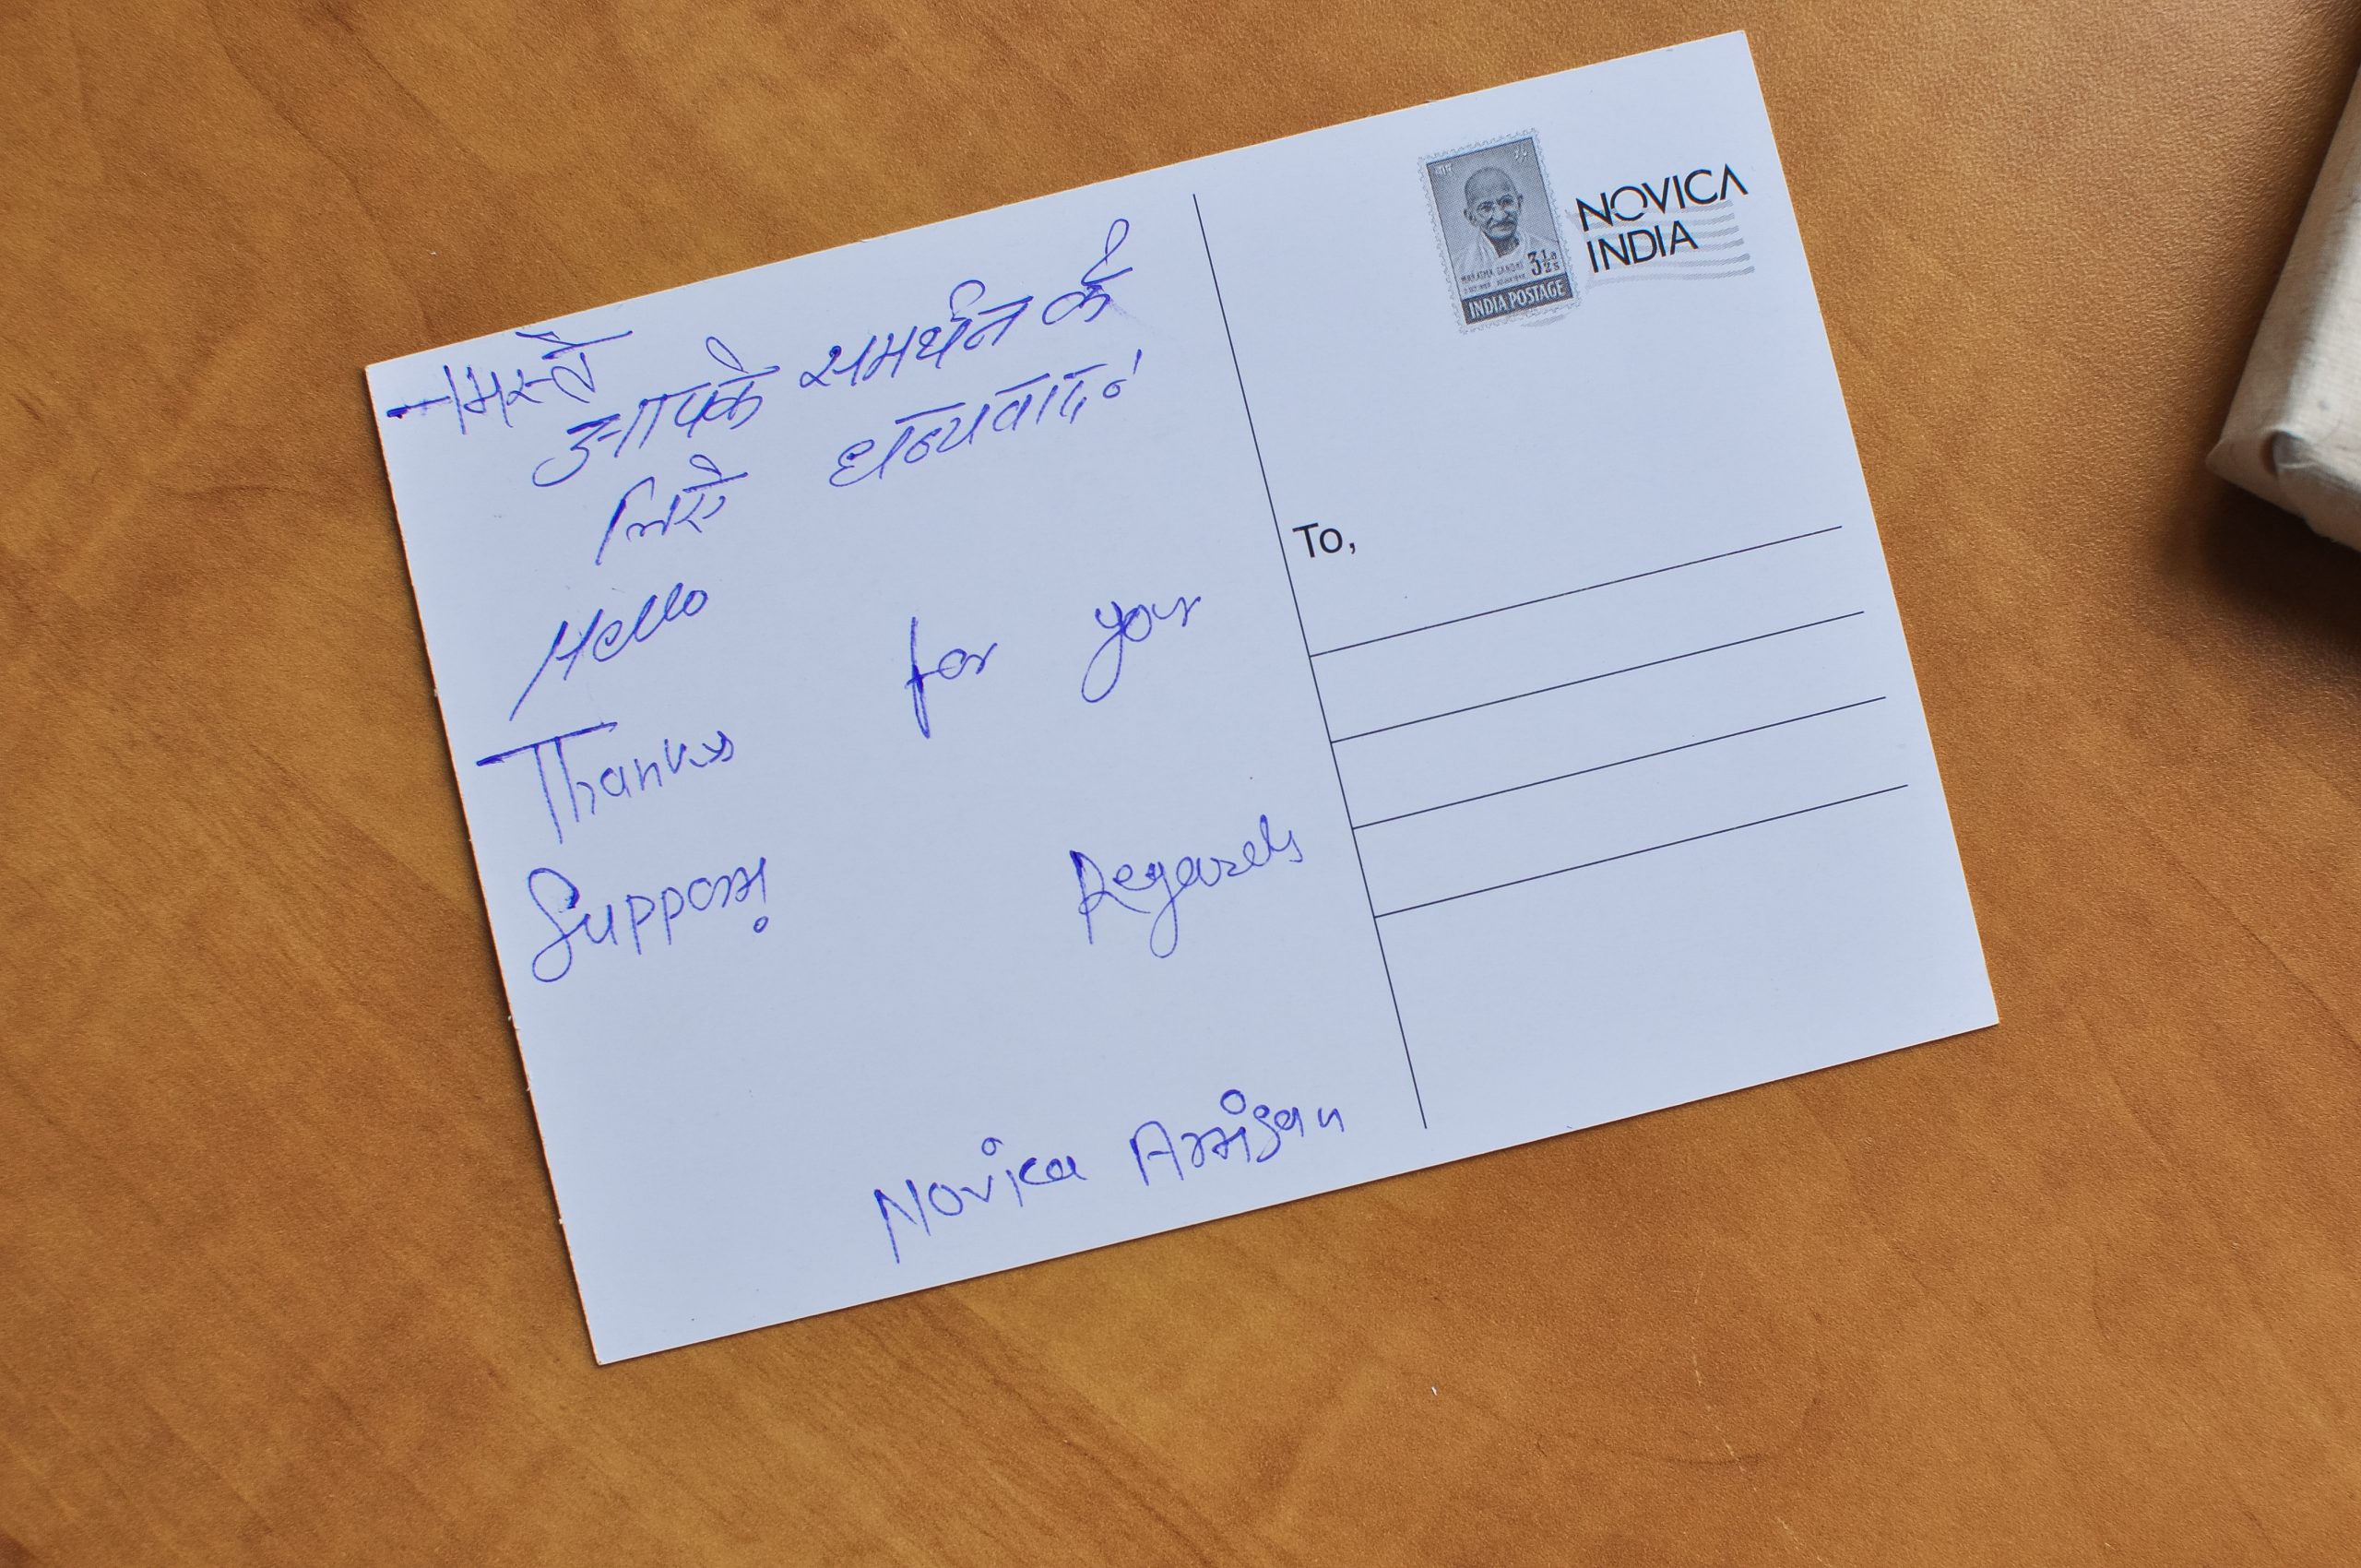 नमस्ते
आपके समर्थन के
लिए धन्यवाद!
Hello
Thanks for your
Support!
Regards
Novica Artisan
NOVICA
INDIA
MAHATMA GANDHI
3½ As
INDIA POSTAGE
To,